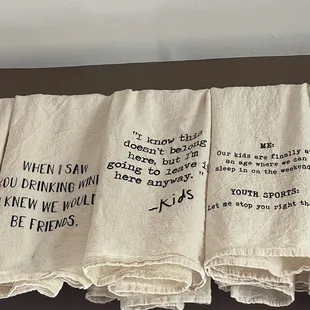 WHEN I SAW
YOU DRINKING WINE
I KNEW WE WOULD
BE FRIENDS.
"I know this
doesn't belong
here, but I'm
going to leave it
here anyway."
-Kids
ME:
Our kids are finally at
an age where we can
sleep in on the weekend
YOUTH SPORTS:
Let me stop you right